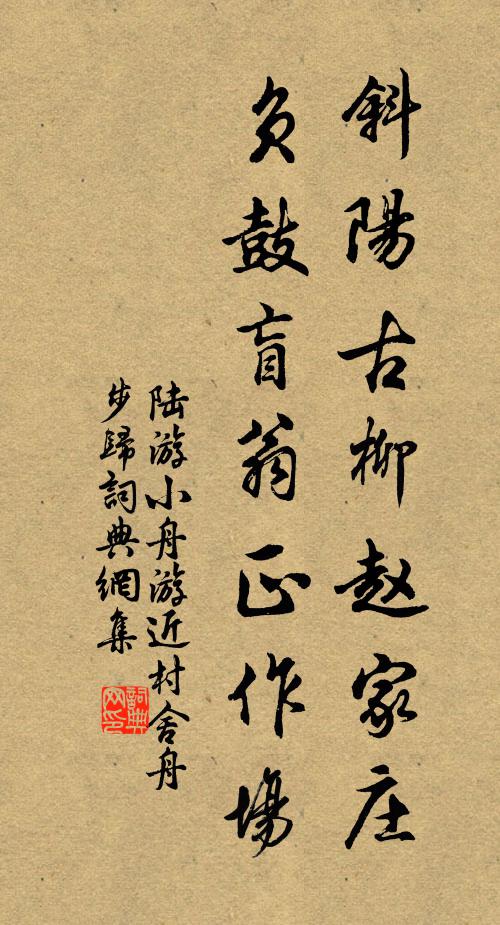 斜陽古柳赵家庄
负鼓盲翁正作場
陆游小舟游近村舍舟
步歸詞典網集
詞典网印